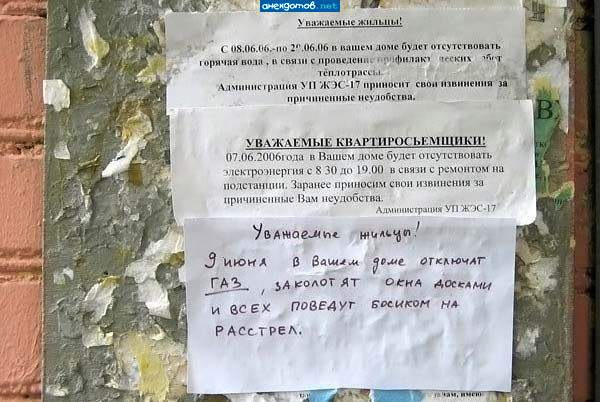 анекдотов.net
Уважаемые жильцы!
С 08.06.06.-по 20.06.06 в вашем доме будет отсутствовать
горячая вода , в связи с проведение
теплотрассы.
Администрация УП ЖЭС-17 приносит свои извинения за
причиненные неудобства.
УВАЖАЕМЫЕ КВАРТИРОСЬЕМЩИКИ!
07.06.2006года в Вашем доме будет отсутствовать
электроэнергия с 8 30 до 19.00 в связи с ремонтом на
подстанции. Заранее приносим свои извинения за
причиненные Вам неудобства.
Администрация УП ЖЭС-17
Уважаемые жильцы!
9 июня в Вашем доме отключат
ГАЗ, заколотят окна досками
и всех поведут босиком на
РАССТРЕЛ.